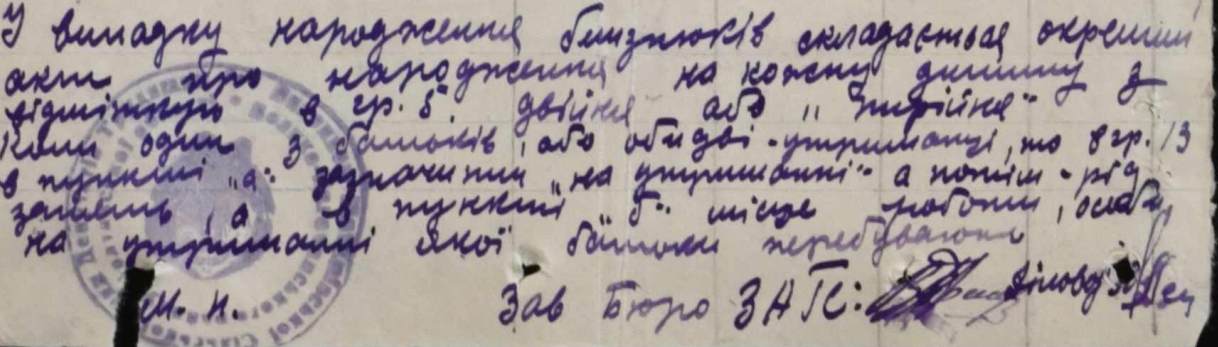 У випадку народження близнюків складається окремий
акт про народження на кожну дитину з
відміткую в гр. 5 „двійня" або „трійня"
Коли один з батьків, або обидві - утриманці, то в гр. 13
в пункті „а" зазначити „на утриманні" а потім - рід
занять, а в пункті „б" місце роботи, особи,
на утриманні якої батьки перебувають
М. П. Зав Бюро ЗАГС: Діловод